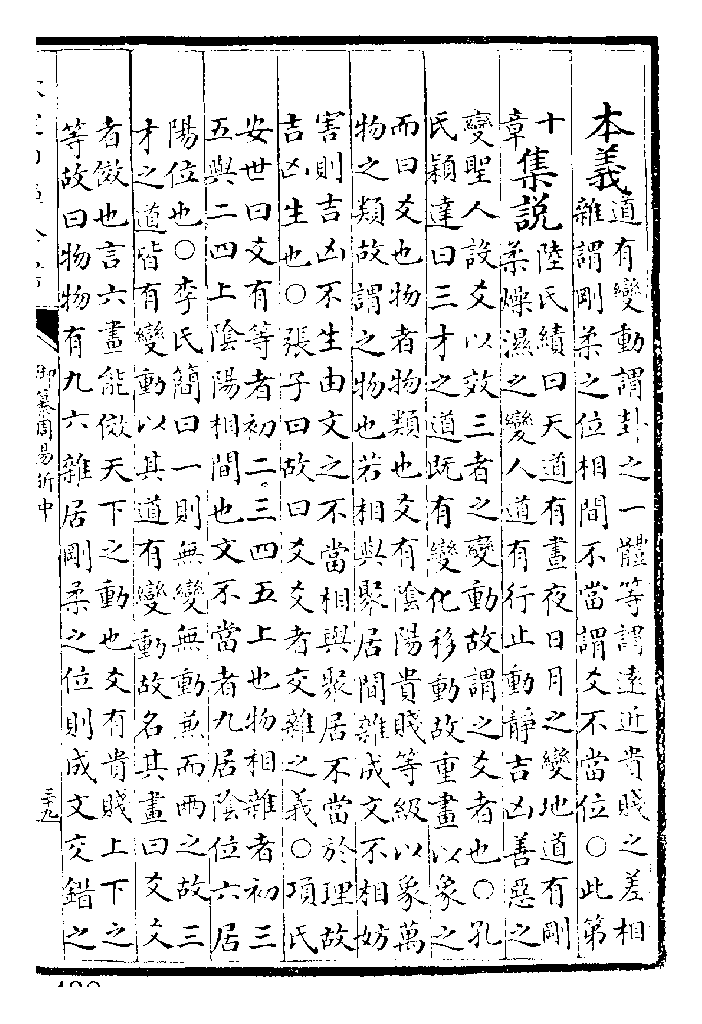 本義道有變動謂卦之一體等謂遠近貴賤之差相
雜謂剛柔之位相間不當謂爻不當位○此第
十
章
集說陸氏績曰天道有晝夜日月之變地道有剛
柔燥濕之變人道有行止動靜吉凶善惡之
變聖人設爻以效三者之變動故謂之爻者也○孔
氏穎達曰三才之道既有變化移動故重畫以象之
而曰爻也物者物類也爻有陰陽貴賤等級以象萬
物之類故謂之物也若相與聚居間雜成文不相妨
害則吉凶不生由文之不當相與聚居不當於理故
吉凶生也○張子曰故曰爻爻者交雜之義○項氏
安世曰爻有等者初二三四五上也物相雜者初三
五與二四上陰陽相間也文不當者九居陰位六居
陽位也○李氏簡曰一則無變無動兼而兩之故三
才之道皆有變動以其道有變動故名其畫曰爻爻
者傚也言六畫能傚天下之動也爻有貴賤上下之
等故曰物物有九六雜居剛柔之位則成文交錯之
御纂周易折中
三十九